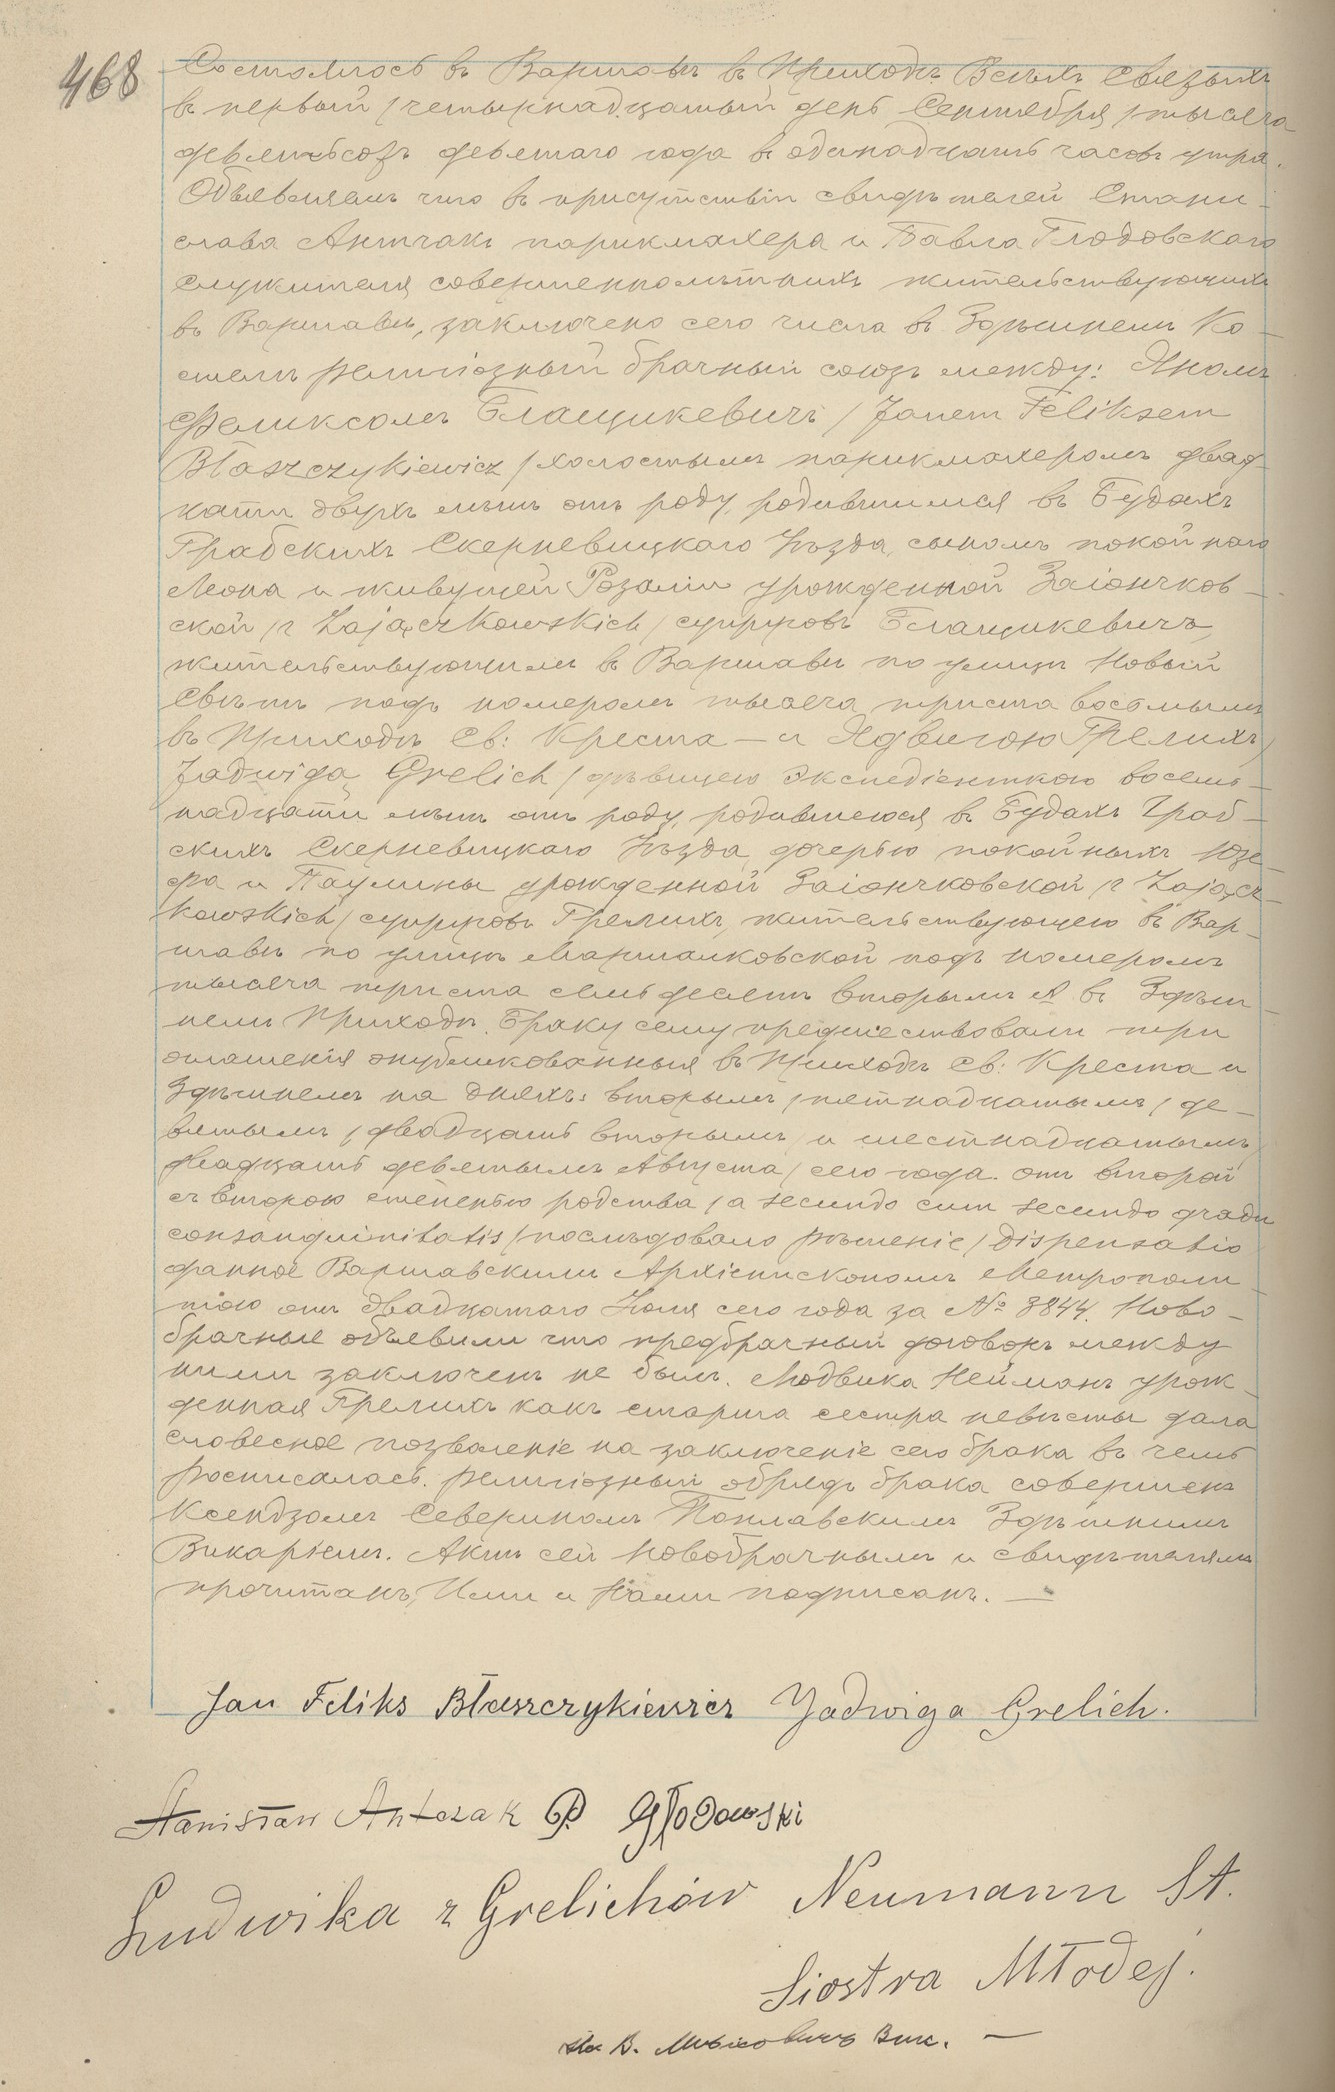 468
Состоялось въ Варшавѣ въ Приходѣ Всѣхъ Святыхъ
въ первый /четырнадцатый день Сентября /тысяча
девятьсотъ девятаго года въ одинадцать часовъ утра.
Объявляемъ что въ присутствіи свидѣтелей Стани-
слава Антчакъ парикмахера и Павла Глодовскаго
служителя совершеннолѣтнихъ жительствующихъ
въ Варшавѣ, заключено сего числа въ Здѣшнемъ Ко-
стелѣ религіозный брачный союзъ между: Яномъ
Феликсомъ Блащикевичъ /Janem Feliksem
Błaszczykiewicz /холостымъ парикмахеромъ двад-
цати двухъ лѣтъ отъ роду, родившимся въ Будахъ
Грабскихъ Скерневицкаго Уѣзда, сыномъ покойнаго
Леона и живущей Розаліи урожденной Заіончков-
ской /z Zajączkowskich/ супруговъ Блащикевичъ,
жительствующимъ въ Варшавѣ по улицѣ Новый
Свѣтъ подъ номеромъ тысяча триста восьмымъ
въ Приходѣ Св: Креста – и Ядвигою Грелихъ/
Jadwigą Grelich /дѣвицею экспедіенткою восемь-
надцати лѣтъ отъ роду, родившеюся въ Будахъ Граб-
скихъ Скерневицкаго Уѣзда, дочерью покойныхъ Юзе-
фа и Паулины урожденной Заіончковской /z Zającz-
kowskich/ супруговъ Грелихъ, жительствующею въ Вар-
шавѣ по улицѣ Маршалковской подъ номеромъ
тысяча триста семьдесятъ вторымъ А въ Здѣш-
немъ Приходѣ. Браку сему предшествовали три
оглашенія опубликованныя въ Приходѣ Св: Креста и
Здѣшнемъ на дняхъ: вторымъ /пятнадцатымъ/ де-
вятымъ /двадцать вторымъ/ и шестнадцатымъ/
двадцать девятымъ Августа/ сего года. отъ второй
съ второю степенью родства /a secundo cum secundo gradu
consanquinitatis/ послѣдовало рѣшеніе /dispensatio
данное Варшавскимъ Архіепископомъ Метрополи-
тою отъ двадцатаго Іюля сего года за № 3844. Ново-
брачные объявили что предбрачный договоръ между
ними заключенъ не былъ. Людвика Нейманъ урож-
денная Грелихъ какъ старша сестра невѣсты дала
словесное позволеніе на заключеніе сего брака въ чемъ
росписалась. Религіозный обрядъ брака совершенъ
Ксендзомъ Севериномъ Поплавскимъ Здѣшнимъ
Викаріемъ. Актъ сей новобрачнымъ и свидѣтелямъ
прочитанъ, Ими и Нами подписанъ. —
Jan Feliks Błaszczykiewicz Jadwiga Grelich.
Stanisław Antczak P. Głodowski
Ludwika z Grelichów Neumann St.
Siostra Młodej.
В. Вик. —